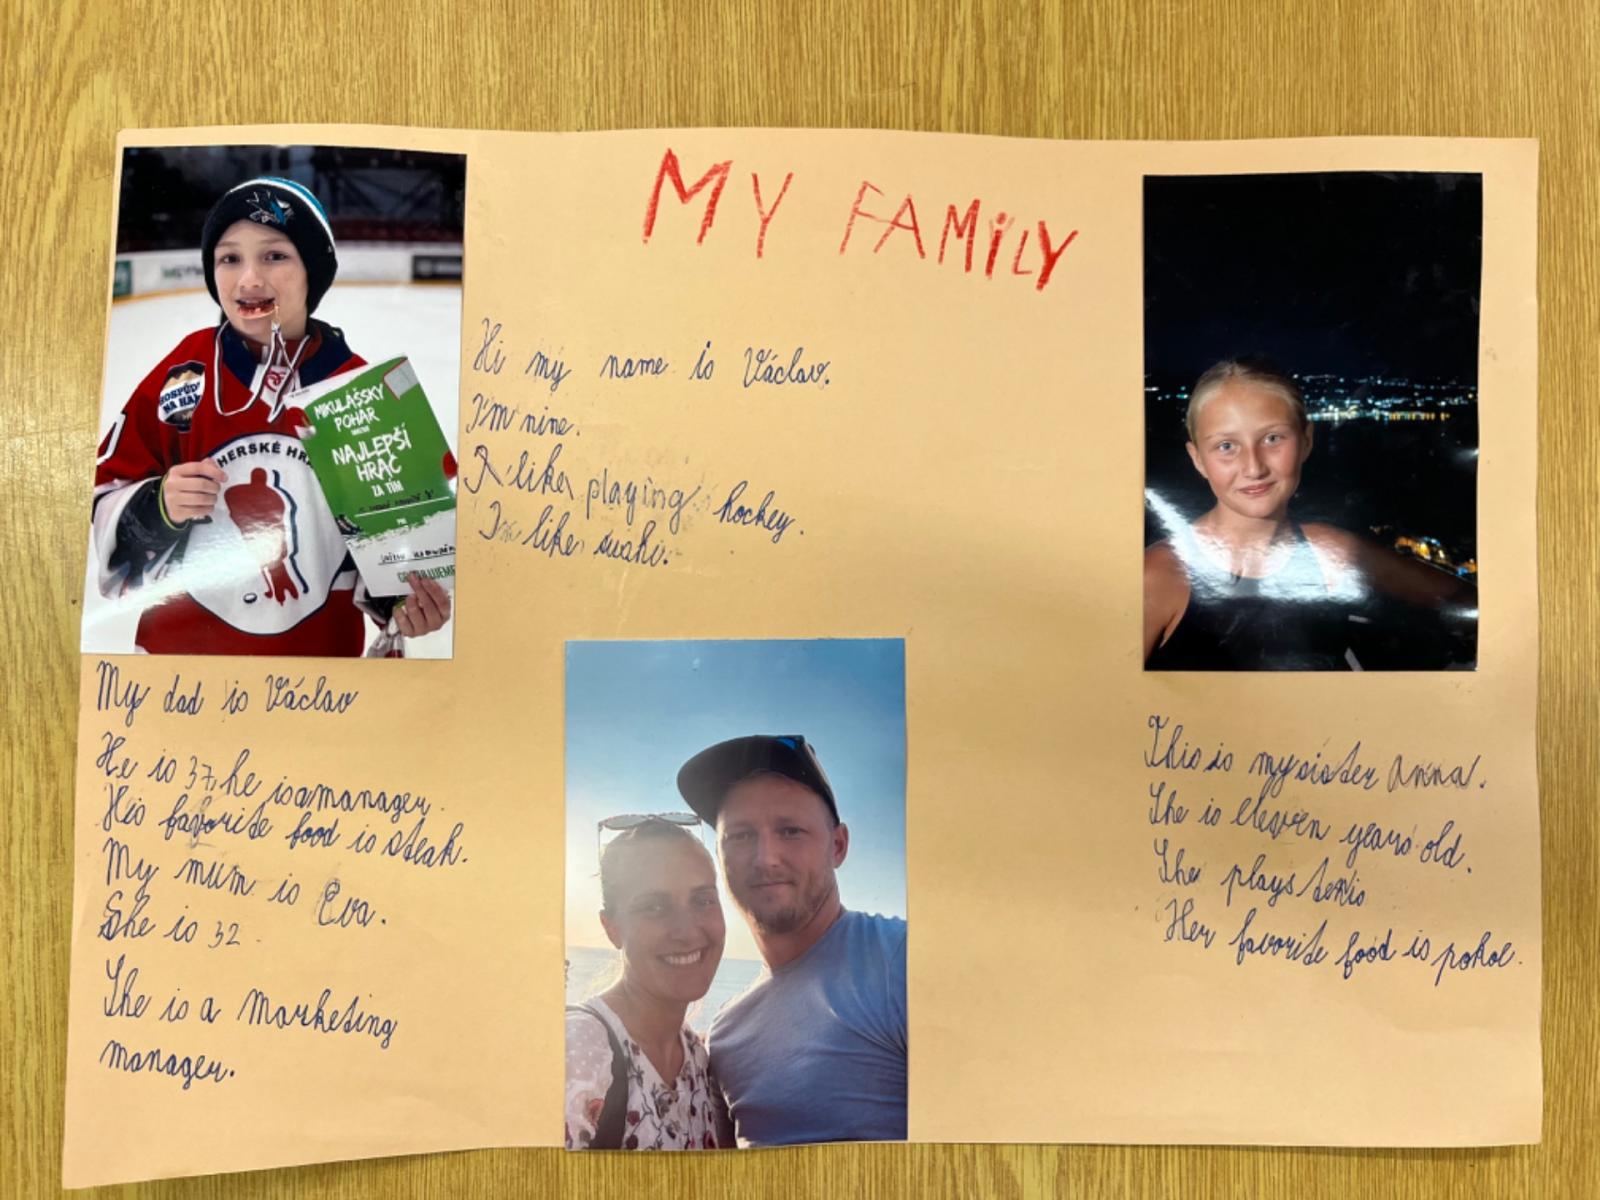 MY FAMILY
HOSPŮDKA
NA HAL
HERSKÉ HR
MIKULÁŠSKY
POHÁR
NAJLEPŠÍ
HRÁČ
ZA TÍM
Hi my name is Václav.
I'm nine.
I like playing hockey.
I'm like sushi.
My dad is Václav
He is 37, he is a manager.
His favorite food is steak.
My mum is Eva.
She is 32.
She is a Marketing
manager.
This is my sister Anna.
She is eleven years old.
She plays tenis
Her favorite food is pokol.